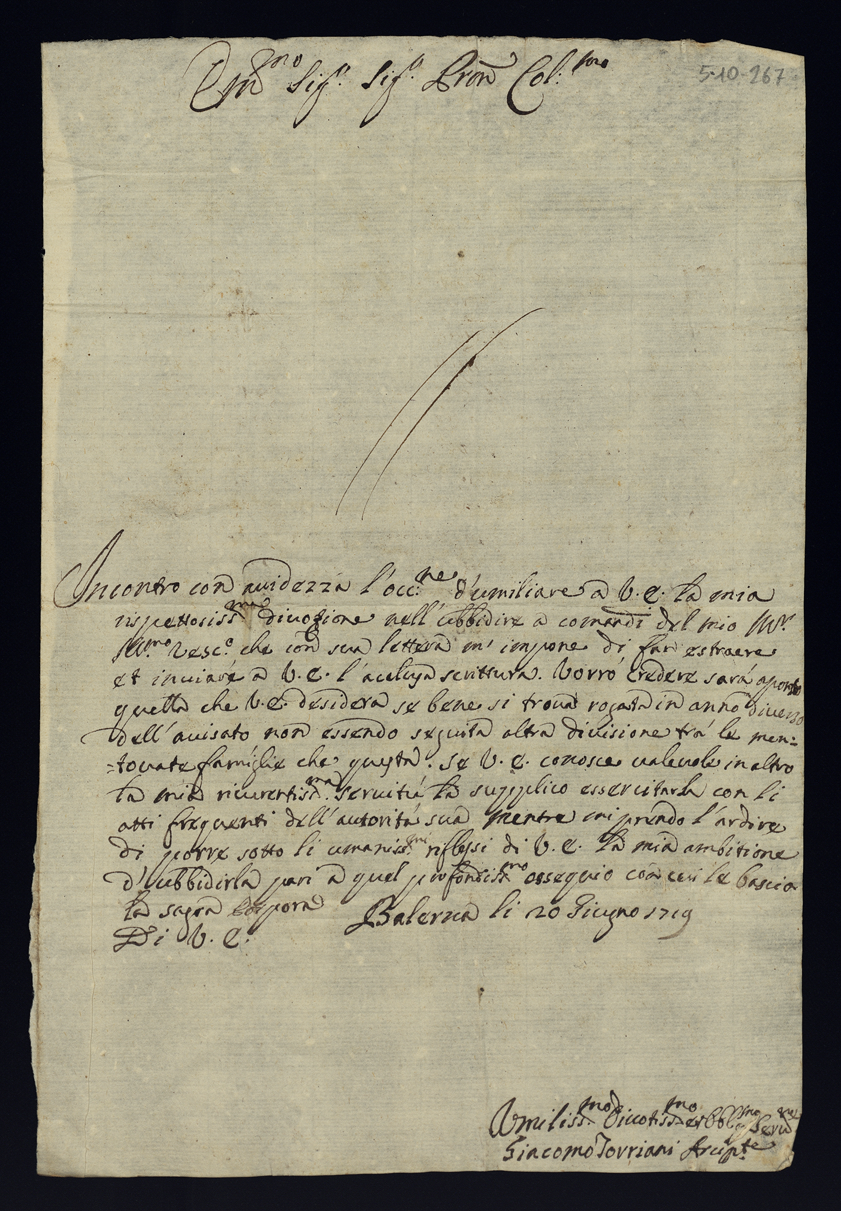 5-10-267
Em.mo Sig.r Sig.r Pron Col.mo
Incontro con avidezza l'occ.ne d'umiliare a V.E. la mia
rispettosiss.ma divozione nell'ubbidire a comandi del mio Mr.
Vesc.o che con sua lettera m'impone di far estraere
et inviare a V.E. l'acclusa scrittura. Vorrò credere sarà aponto
quella che V.E. desidera se bene si trova rogata in anno diverso
dell'avisato non essendo seguita altra divisione trà le men:
:tovate famiglie che questa. Se V.E. conosce valevole in altro
la mia riverentis.ma servitù la supplico essercitarla con li
atti frequenti dell'autorità sua mentre mi prendo l'ardire
di porre sotto li umaniss.mi riflessi di V.E. la mia ambitione
d'ubbidirla pari a quel profondiss.mo ossequio con cui le bascio
la sagra porpora Balerna li 20 Giugno 1719
Di V.E.
Umiliss.mo Divotiss.mo et Obblig.mo Serv.re
Giacomo Torriani Arcip.te